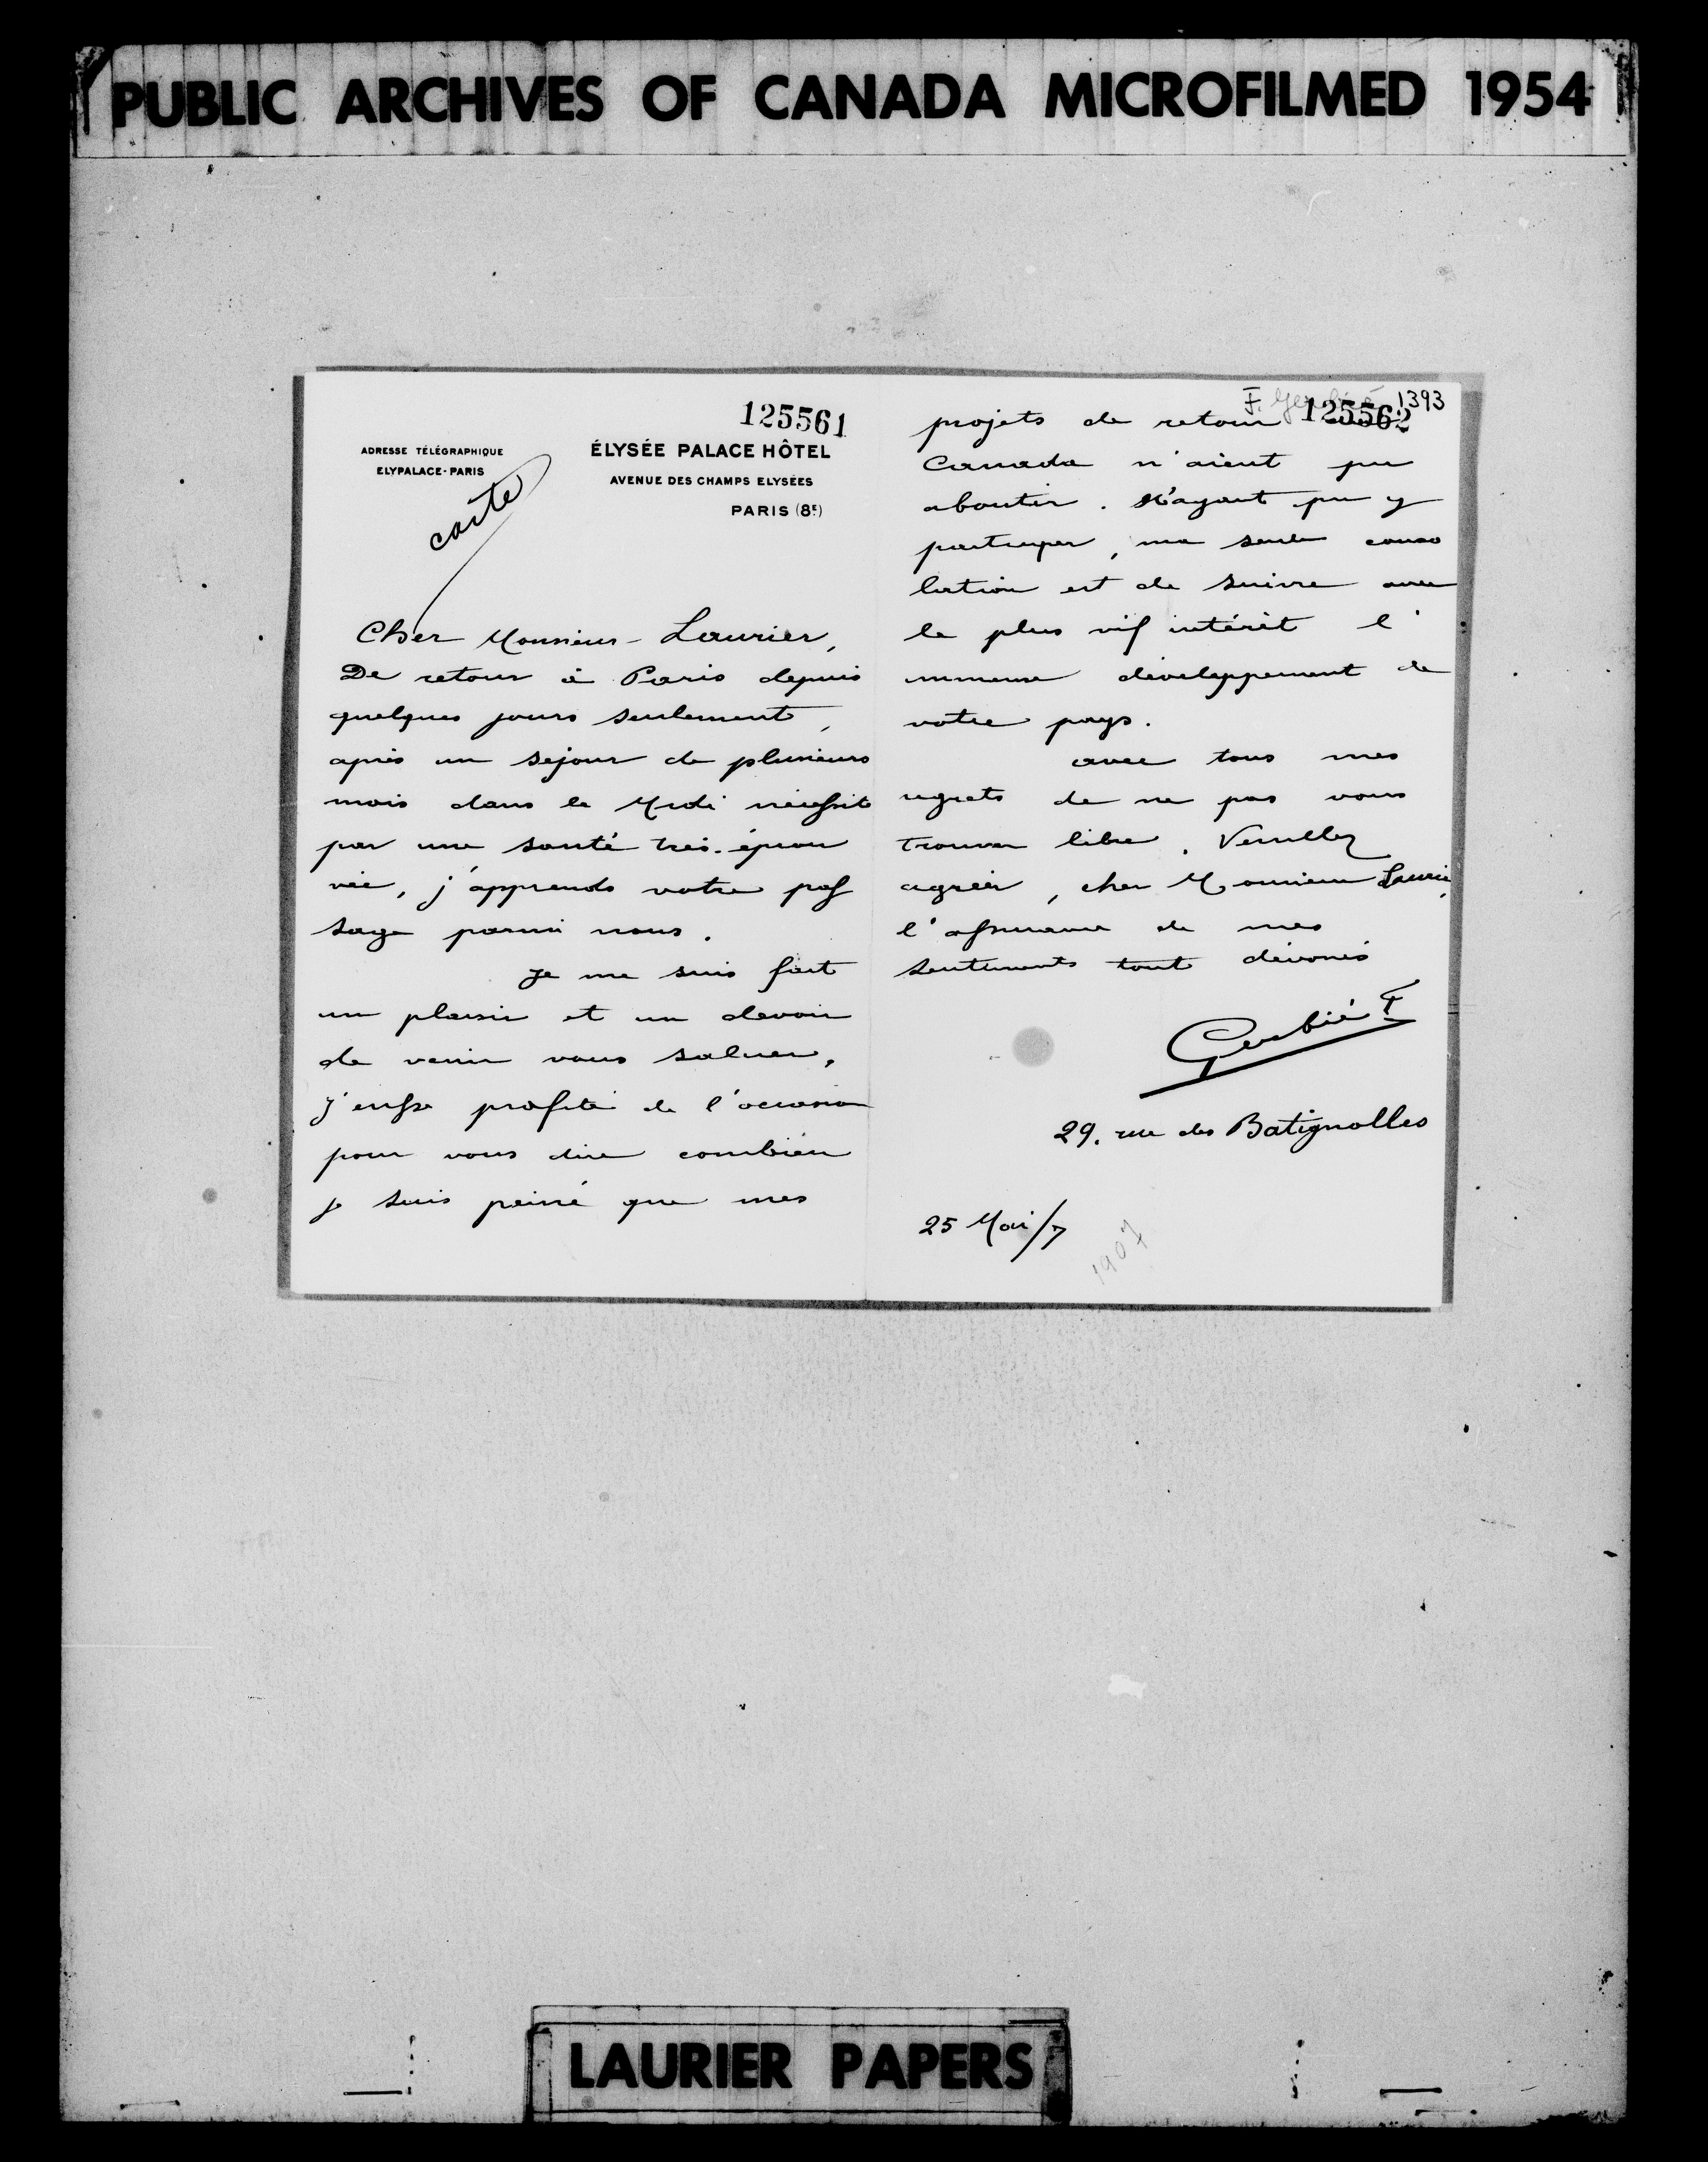 PUBLIC ARCHIVES OF CANADA MICROFILMED 1954
125561
ADRESSE TÉLÉGRAPHIQUE
ELYPALACE-PARIS
ÉLYSÉE PALACE HÔTEL
AVENUE DES CHAMPS ELYSÉES
PARIS (8E)
carte
Cher Monsieur Laurier,
De retour à Paris depuis
quelques jours seulement,
après un séjour de plusieurs
mois dans le Midi nécessité
par une santé très éprou
vée, j'apprends votre pas
sage parmi nous.
Je me suis fait
un plaisir et un devoir
de venir vous saluer,
j'eusse profité de l'occasion
pour vous dire combien
je suis peiné que mes
F. Gerbié 1393
125562
projets de retour
Canada n'aient pu
aboutir. N'ayant pu y
participer, ma seule conso
lation est de suivre avec
le plus vif intérêt l'
immense développement de
votre pays.
avec tous mes
regrets de ne pas vous
trouver libre. Veuillez
agréer, cher Monsieur Laurier,
l'assurance de mes
sentiments tout dévoués
Gerbié F
29. rue des Batignolles
25 Mai/7
1907
LAURIER PAPERS